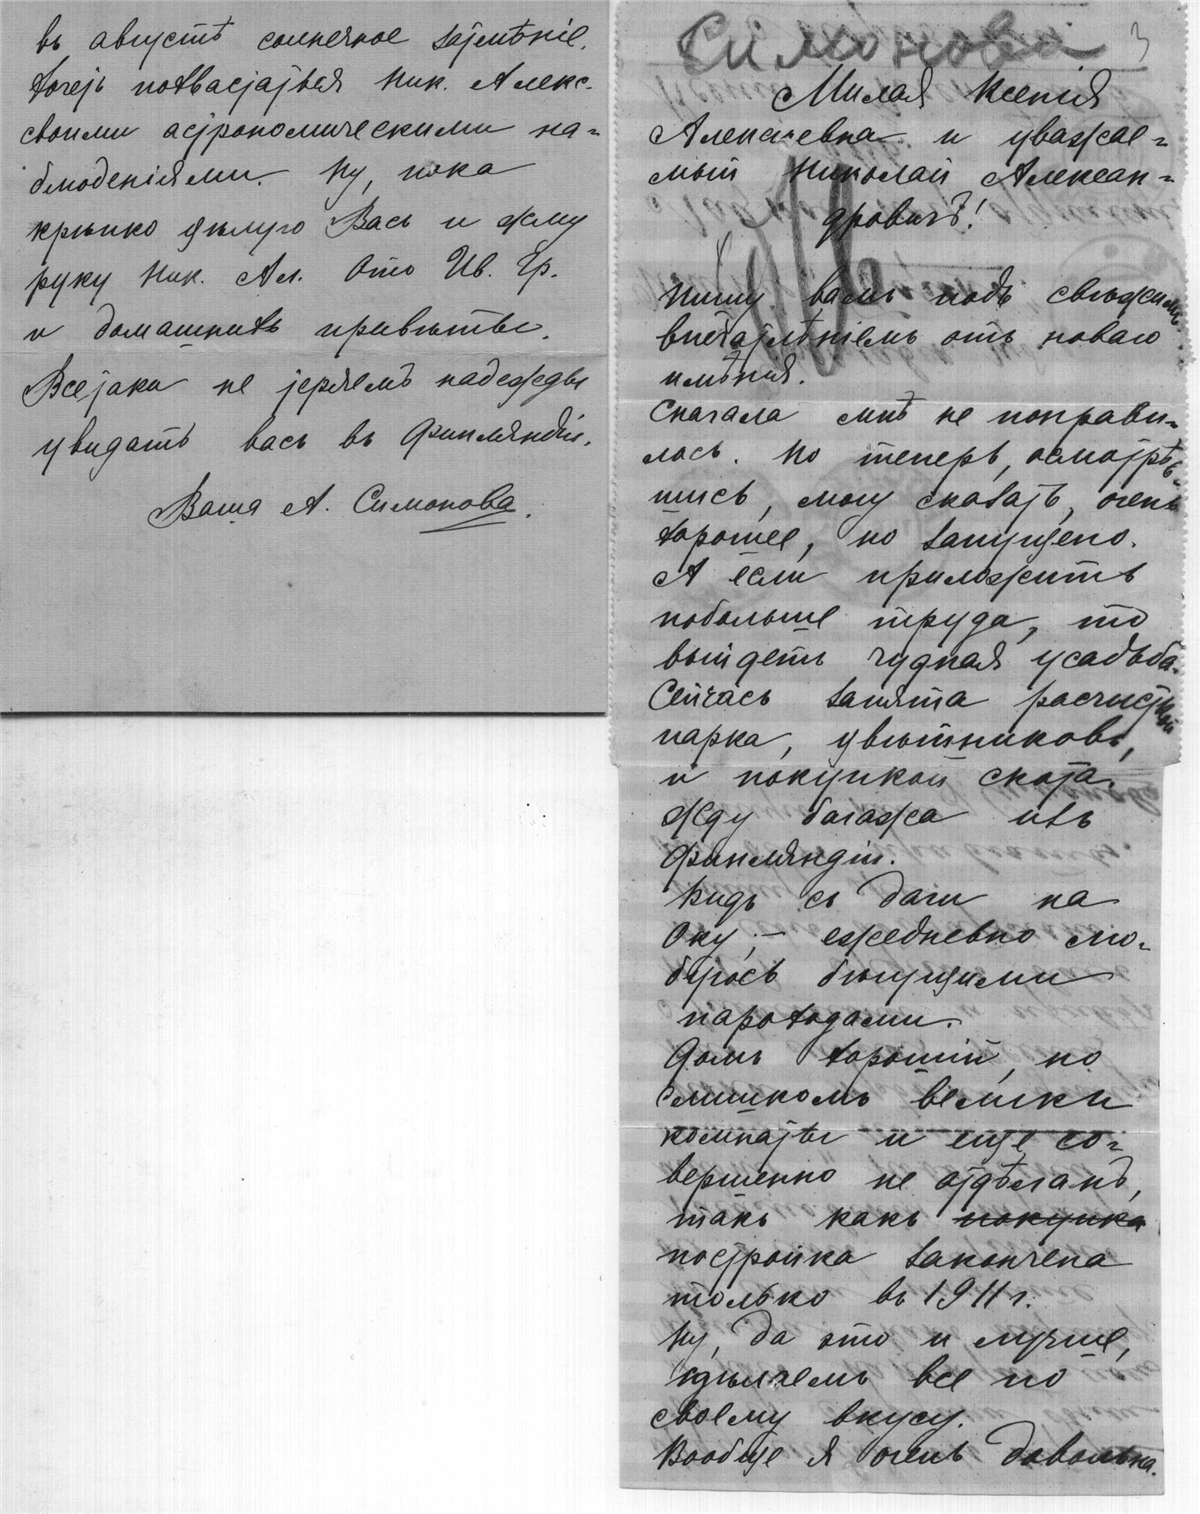 въ августѣ солнечное затмѣніе.
Хочетъ похвастаться Ник. Алекс.
своими астрономическими на=
блюденіями. Ну, пока
крѣпко цѣлую Васъ и жму
руку Ник. Ал. Отъ Ив. Гр.
и домашнихъ привѣтъ.
Всетаки не теряемъ надежды
увидать васъ въ Финляндіи.
Ваша А. Симонова.
Симонова
3
Милая Ксенія
Алексѣевна и уважае=
мый Николай Алексан=
дровичъ!
Пишу вамъ подъ свѣжимъ
впечатлѣніемъ отъ новаго
имѣнія.
Сначала мнѣ не понрави=
лось. Но теперь, осмотрѣв=
шись, могу сказать, очень
хорошее, но запущено.
А если приложить
побольше труда, то
выйдетъ чудная усадьба.
Сейчасъ занята расчисткой
парка, цвѣтниковъ,
и покупкой скота.
Жду багажа изъ
Финляндіи.
Видъ съ дачи на
Оку; – ежедневно лю=
буюсь бѣгущими
пароходами.
Домъ хорошій, но
слишкомъ велики
комнаты и еще со=
вершенно не отдѣланъ,
такъ какъ покупка
постройка закончена
только въ 1911 г.
Ну, да это и лучше,
сдѣлаемъ все по
своему вкусу.
Вообще я очень довольна.